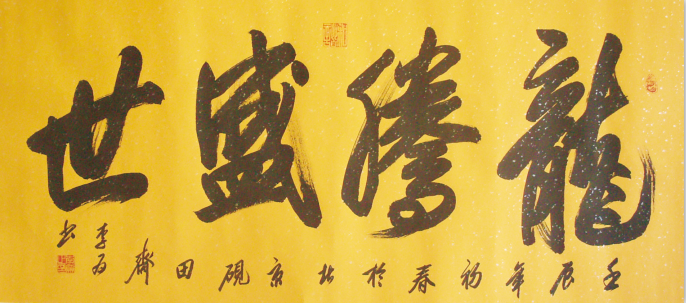 龍騰盛世
壬辰年初春於北京硯田齋
李为书